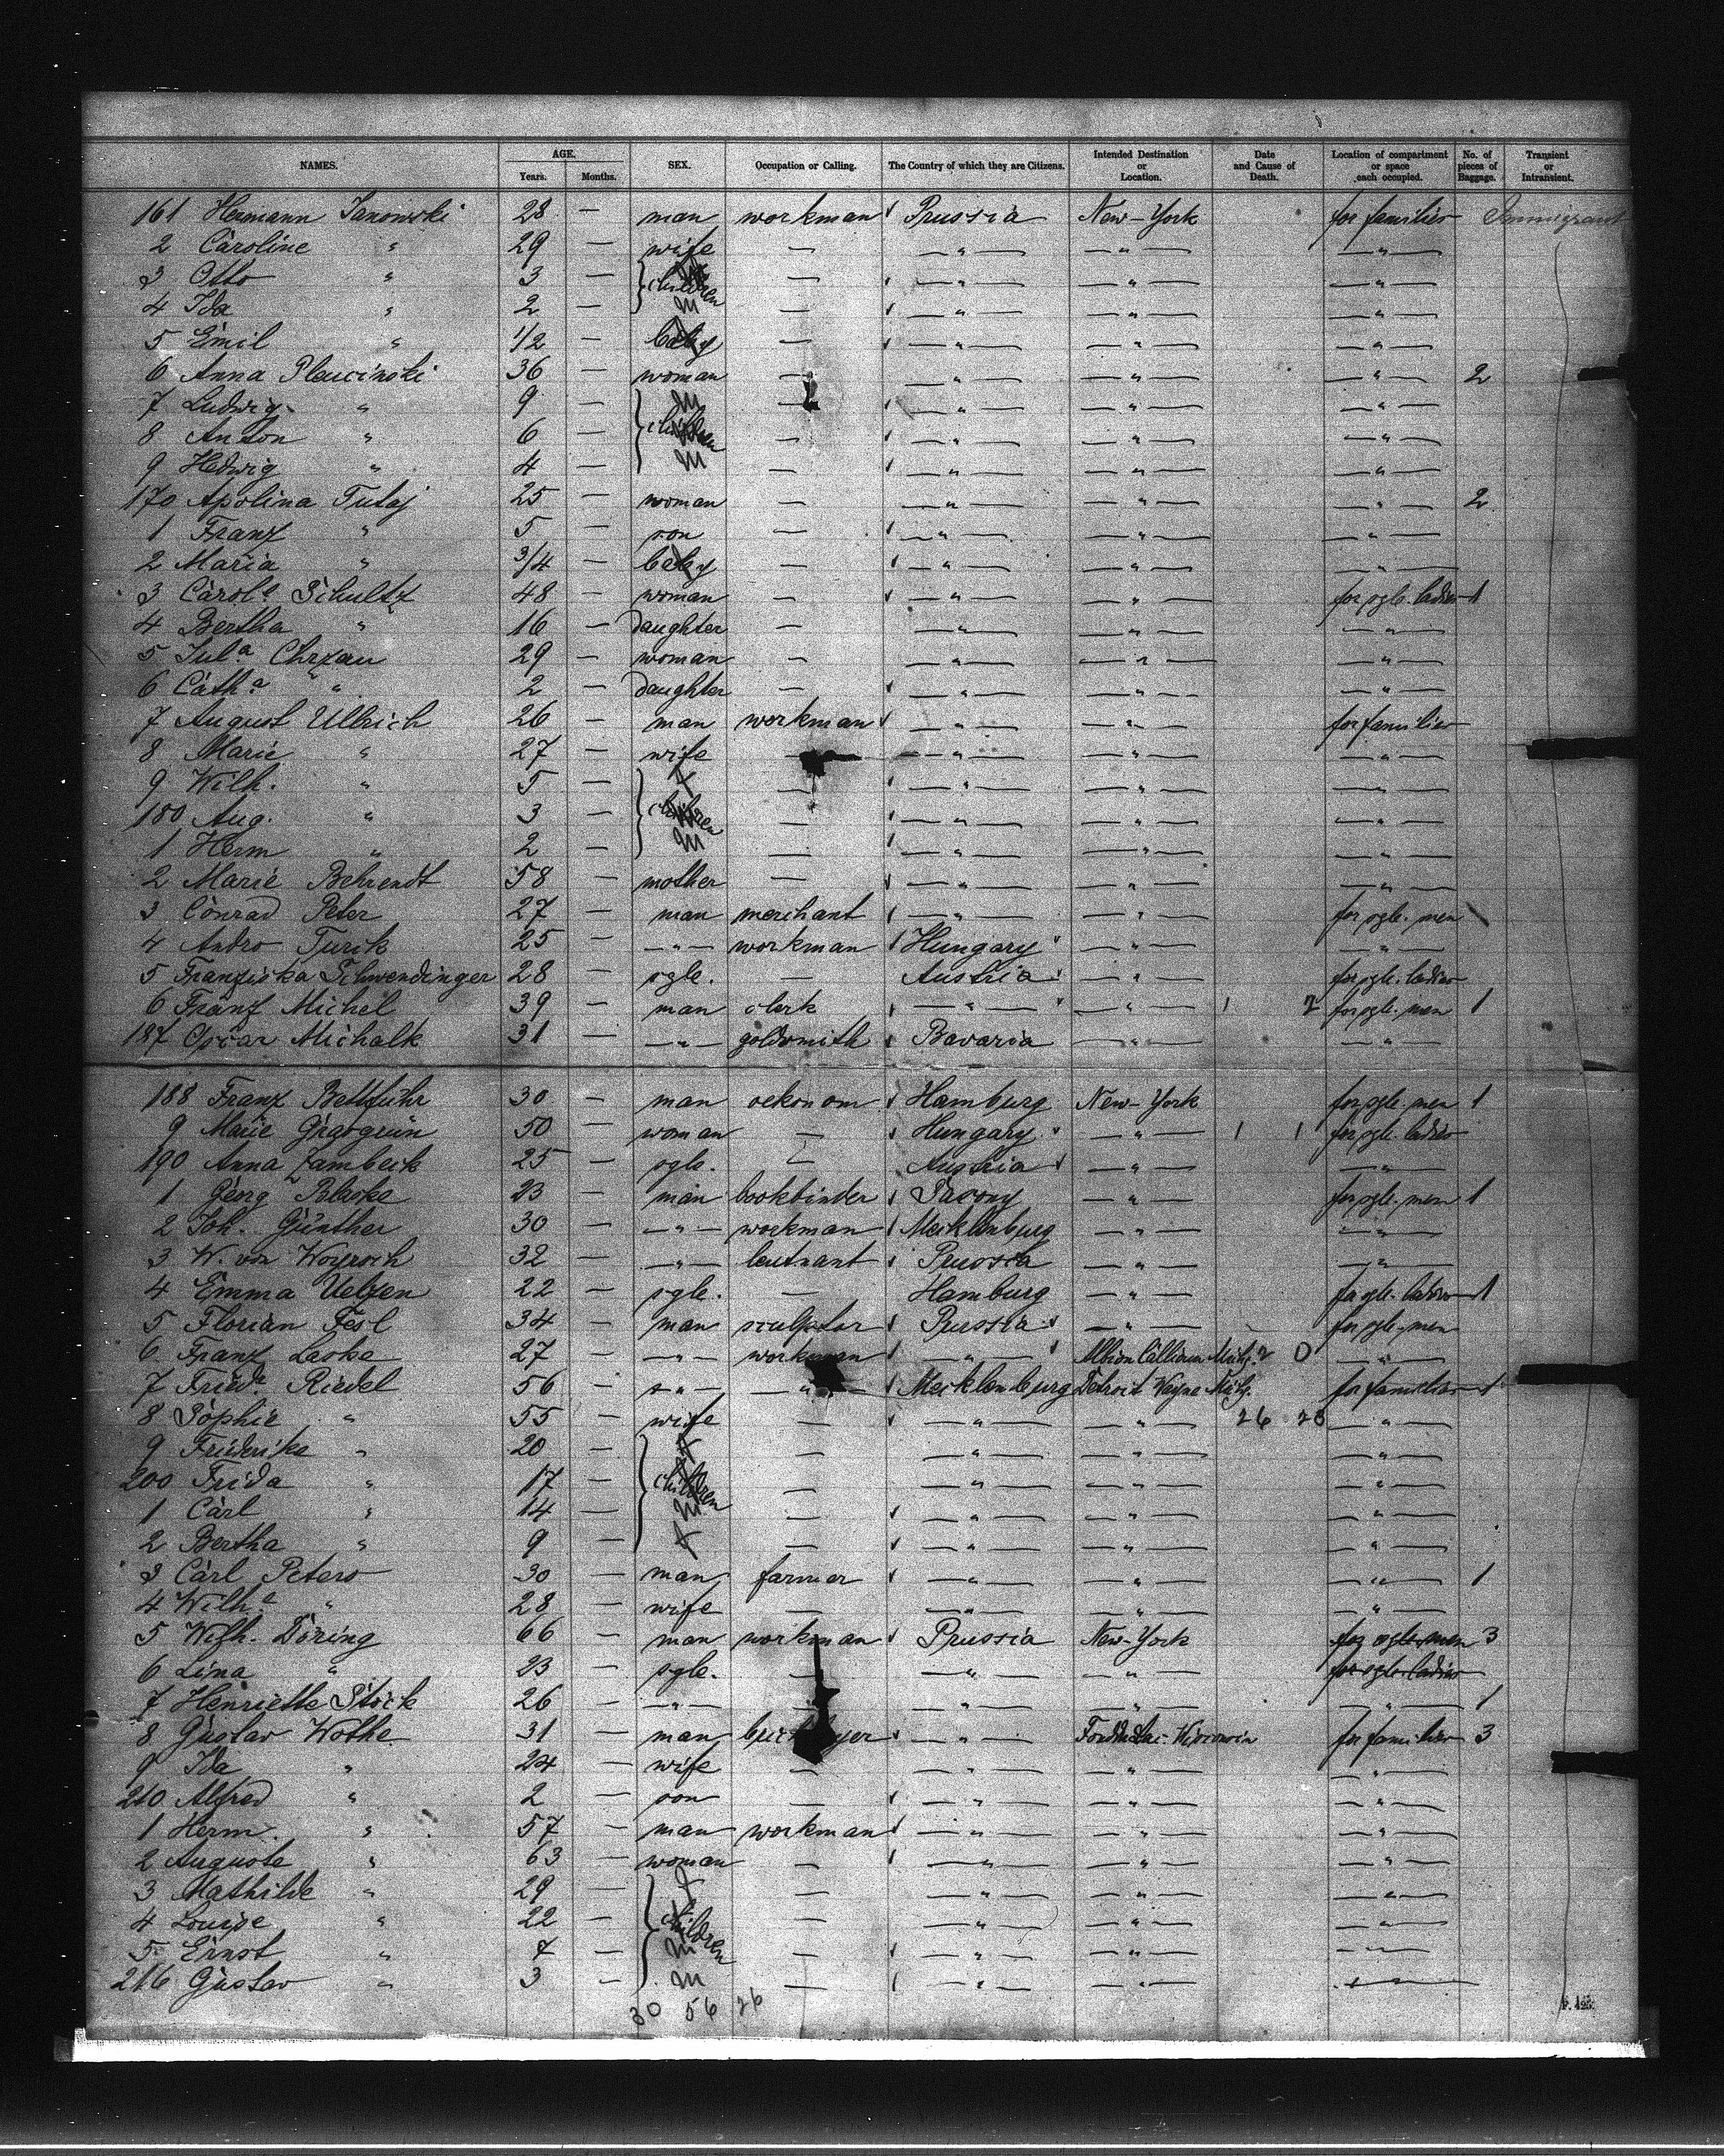 NAMES. AGE. Years. Months. SEX. Occupation or Calling. The Country of which they are Citizens. Intended Destination or Location. Date and Cause of Death. Location of compartment or space each occupied. No. of pieces of Baggage. Transient or Intransient.
161 Hermann Janowski 28 — man workman Prussia New-York for families Immigrant
2 Caroline " 29 — wife — — " — — " — — " —
3 Otto " 3 — children — — " — — " — — " —
4 Ida " 2 — — — " — — " — — " —
5 Emil " 1/2 — baby — — " — — " — — " —
6 Anna Pleucinski 36 — woman — — " — — " — — " — 2
7 Ludwig " 9 — m — — " — — " — — " —
8 Anton " 6 — children — — " — — " — — " —
9 Hedwig " 4 — m — — " — — " — — " —
170 Apolina Tutaj 25 — woman — — " — — " — — " — 2
1 Franz " 5 — son — — " — — " — — " —
2 Maria " 3/4 — baby — — " — — " — — " —
3 Carol.e Schultz 48 — woman — — " — — " — for sgle. ladies 1
4 Bertha " 16 — daughter — — " — — " — — " —
5 Jul.a Chrzan 29 — woman — — " — — " — — " —
6 Cath.a " 2 — daughter — — " — — " — — " —
7 August Ullrich 26 — man workman — " — — " — for families
8 Marie " 27 — wife — — " — — " — — " —
9 Wilh. " 5 — f — — " — — " — — " —
180 Aug. " 3 — children — — " — — " — — " —
1 Herm " 2 — m — — " — — " — — " —
2 Marie Behrendt 58 — mother — — " — — " — — " —
3 Conrad Peter 27 — man merchant — " — — " — for sgle. men
4 Andro Turik 25 — — " — workman Hungary — " — — " —
5 Franziska Schwendinger 28 — sgle. — Austria — " — for sgle. ladies
6 Franz Michel 39 — man clerk — " — — " — 1 2 for sgle. men 1
187 Oscar Michalk 31 — — " — goldsmith Bavaria — " — — " —
188 Franz Bettführ 30 — man oekonom Hamburg New-York for sgle. men 1
9 Marie Grasgrün 50 — woman — Hungary — " — 1 1 for sgle. ladies
190 Anna Zambeck 25 — sgle. — Austria — " — — " —
1 Georg Blaske 23 — man bookbinder Saxony — " — for sgle. men 1
2 Joh. Günther 30 — — " — workman Mecklenburg — " — — " —
3 W. von Woyrsch 32 — — " — leutnant Prussia — " — — " —
4 Emma Uelzen 22 — sgle. — Hamburg — " — for sgle. ladies 1
5 Florian Fesl 34 — man sculptor Prussia — " — for sgle. men
6 Franz Laska 27 — — " — workman — " — Albion Mich. 2 0 — " —
7 Fried. Riedel 56 — — " — — " — Mecklenburg Detroit Wayne Mich. for families 1
8 Sophie " 55 — wife — — " — — " — 26 28 — " —
9 Friderike " 20 — f — — " — — " — — " —
200 Frida " 17 — children — — " — — " — — " —
1 Carl " 14 — m — — " — — " — — " —
2 Bertha " 9 — f — — " — — " — — " —
3 Carl Peters 30 — man farmer — " — — " — — " — 1
4 Wilh.e " 28 — wife — — " — — " — — " —
5 Wilh. Döring 66 — man workman Prussia New-York for sgle. men 3
6 Lina " 23 — sgle. — — " — — " — for sgle. ladies
7 Henriette Stöck 26 — — " — — " — — " — — " — 1
8 Gustav Wothe 31 — man — " — Fond du Lac-Wisconsin for families 3
9 Ida " 24 — wife — — " — — " — — " —
210 Alfred " 2 — son — — " — — " — — " —
1 Herm. " 57 — man workman — " — — " — — " —
2 Auguste " 63 — woman — — " — — " — — " —
3 Mathilde " 29 — f — — " — — " — — " —
4 Louise " 22 — children — — " — — " — — " —
5 Ernst " 7 — m — — " — — " — — " —
216 Gustav " 3 — m — — " — — " — — " —
30 56 26